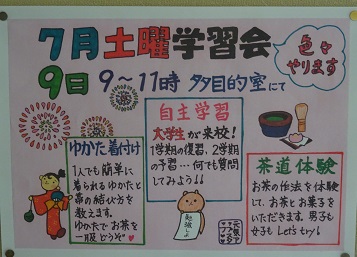 7月土曜学習会
色々
やります
9日 9〜11時 多目的室にて
ゆかた着付け
1人でも簡単に
着られるゆかたと
帯の結い方を
教えます。
ゆかたでお茶を
一服どうぞ♥
自主学習
大学生が来校!
1学期の復習、2学期
の予習…何でも質問
してみよう!!
勉強しよ
茶道体験
お茶の作法を体験
して、お茶とお菓子を
いただきます。男子も
女子も Let's try!